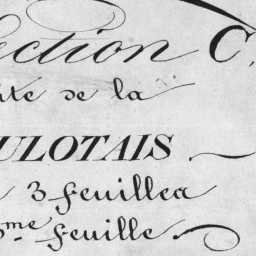 ection C.
ite de la
ULOTAIS
3 feuilles
me feuille